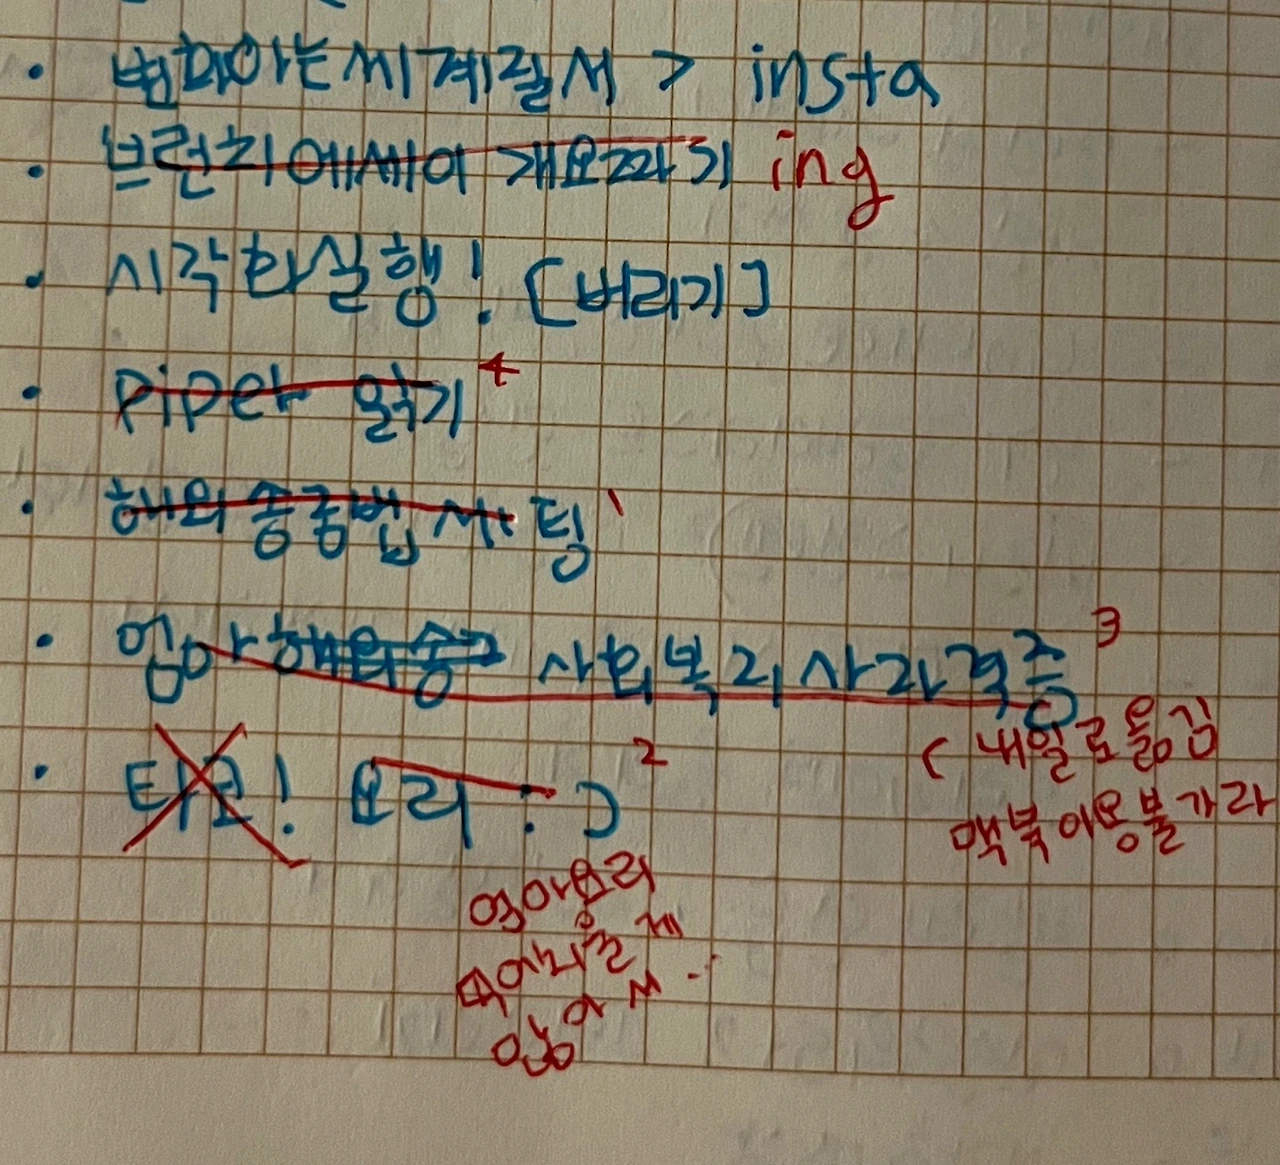 · 범죄아는세계질서 > insta
· 브런치에세이 개요짜기 ing
· 시각화실행! [버리기]
· piper 읽기 4
· 해외송금법 서팅 1
· 엄마 해외송금 사회복지사자격증 3
(내일로옮김
맥북이용불가라
· 타코! 요리 :) 2
엄마요리
먹어치울게
있어서..